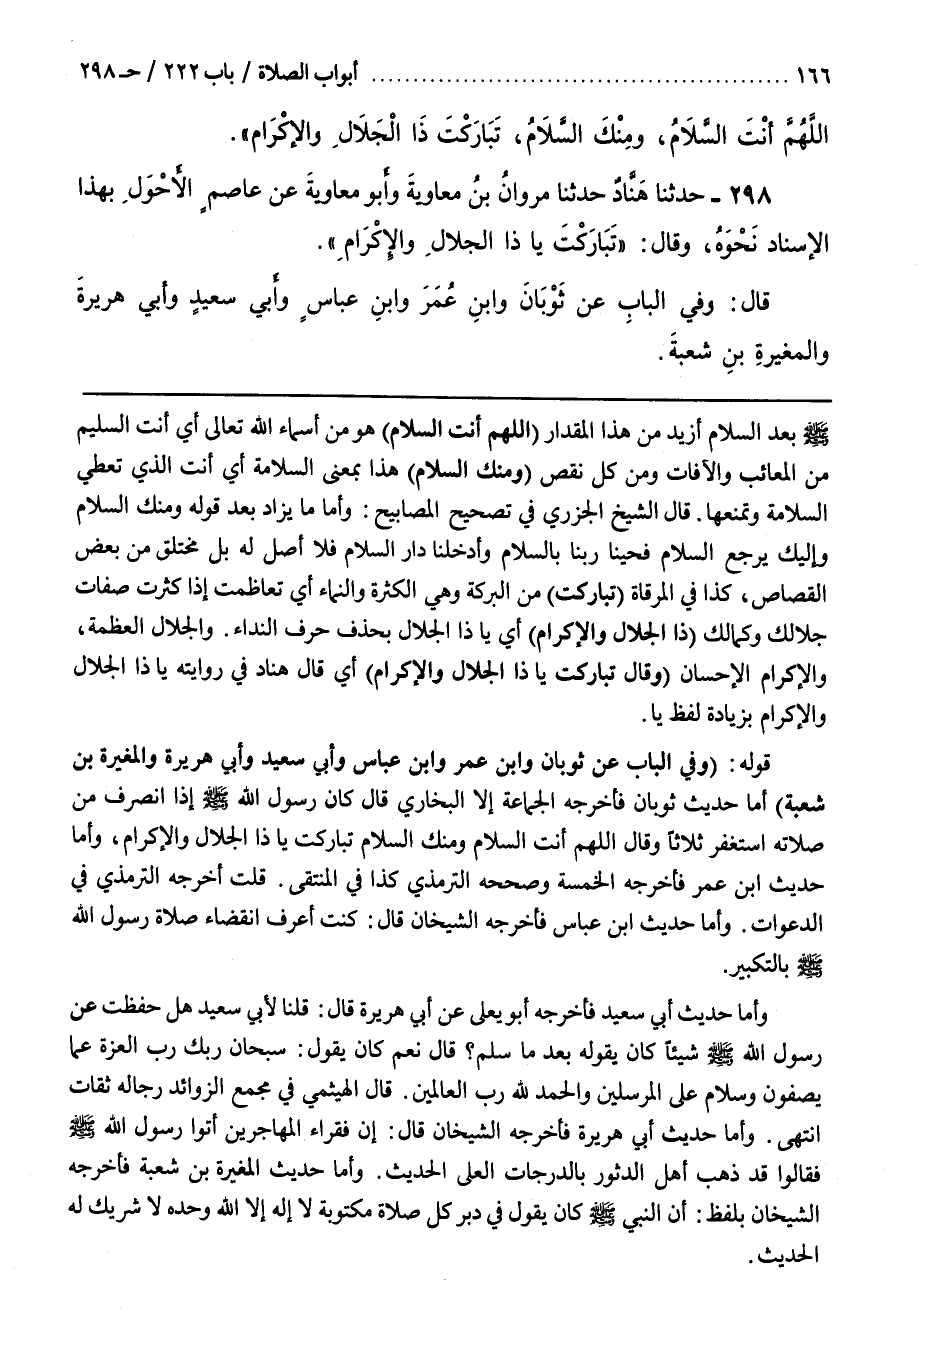 ١٦٦ .................................................. أبواب الصلاة / باب ٢٢٢ / حـ ٢٩٨
اللَّهُمَّ أنْتَ السَّلَامُ، ومِنْكَ السَّلَامُ، تَبَارَكْتَ ذَا الْجَلَالِ والإكْرَامِ».
٢٩٨ - حدثنا هَنَّادٌ حدثنا مروانُ بنُ معاويةَ وأَبو معاويةَ عن عاصمٍ الأَحْوَلِ بهذا
الإسناد نَحْوَهُ، وقال: «تَبَارَكْتَ يا ذا الجلالِ والإِكْرَامِ».
قال: وفي البابِ عن ثَوْبَانَ وابنِ عُمَرَ وابنِ عباسٍ وأَبي سعيدٍ وأبي هريرةَ
والمغيرةِ بنِ شعبةَ.
ﷺ بعد السلام أزيد من هذا المقدار (اللهم أنت السلام) هو من أسماء الله تعالى أي أنت السليم
من المعائب والآفات ومن كل نقص (ومنك السلام) هذا بمعنى السلامة أي أنت الذي تعطي
السلامة وتمنعها. قال الشيخ الجزري في تصحيح المصابيح: وأما ما يزاد بعد قوله ومنك السلام
وإليك يرجع السلام فحينا ربنا بالسلام وأدخلنا دار السلام فلا أصل له بل مختلق من بعض
القصاص، كذا في المرقاة (تباركت) من البركة وهي الكثرة والنماء أي تعاظمت إذا كثرت صفات
جلالك وكمالك (ذا الجلال والإكرام) أي يا ذا الجلال بحذف حرف النداء. والجلال العظمة،
والإكرام الإحسان (وقال تباركت يا ذا الجلال والإكرام) أي قال هناد في روايته يا ذا الجلال
والإكرام بزيادة لفظ يا.
قوله: (وفي الباب عن ثوبان وابن عمر وابن عباس وأبي سعيد وأبي هريرة والمغيرة بن
شعبة) أما حديث ثوبان فأخرجه الجماعة إلا البخاري قال كان رسول الله ﷺ إذا انصرف من
صلاته استغفر ثلاثاً وقال اللهم أنت السلام ومنك السلام تباركت يا ذا الجلال والإكرام، وأما
حديث ابن عمر فأخرجه الخمسة وصححه الترمذي كذا في المنتقى. قلت أخرجه الترمذي في
الدعوات. وأما حديث ابن عباس فأخرجه الشيخان قال: كنت أعرف انقضاء صلاة رسول الله
ﷺ بالتكبير.
وأما حديث أبي سعيد فأخرجه أبو يعلى عن أبي هريرة قال: قلنا لأبي سعيد هل حفظت عن
رسول الله ﷺ شيئاً كان يقوله بعد ما سلم؟ قال نعم كان يقول: سبحان ربك رب العزة عما
يصفون وسلام على المرسلين والحمد لله رب العالمين. قال الهيثمي في مجمع الزوائد رجاله ثقات
انتهى. وأما حديث أبي هريرة فأخرجه الشيخان قال: إن فقراء المهاجرين أتوا رسول الله ﷺ
فقالوا قد ذهب أهل الدثور بالدرجات العلى الحديث. وأما حديث المغيرة بن شعبة فأخرجه
الشيخان بلفظ: أن النبي ﷺ كان يقول في دبر كل صلاة مكتوبة لا إله إلا الله وحده لا شريك له
الحديث.